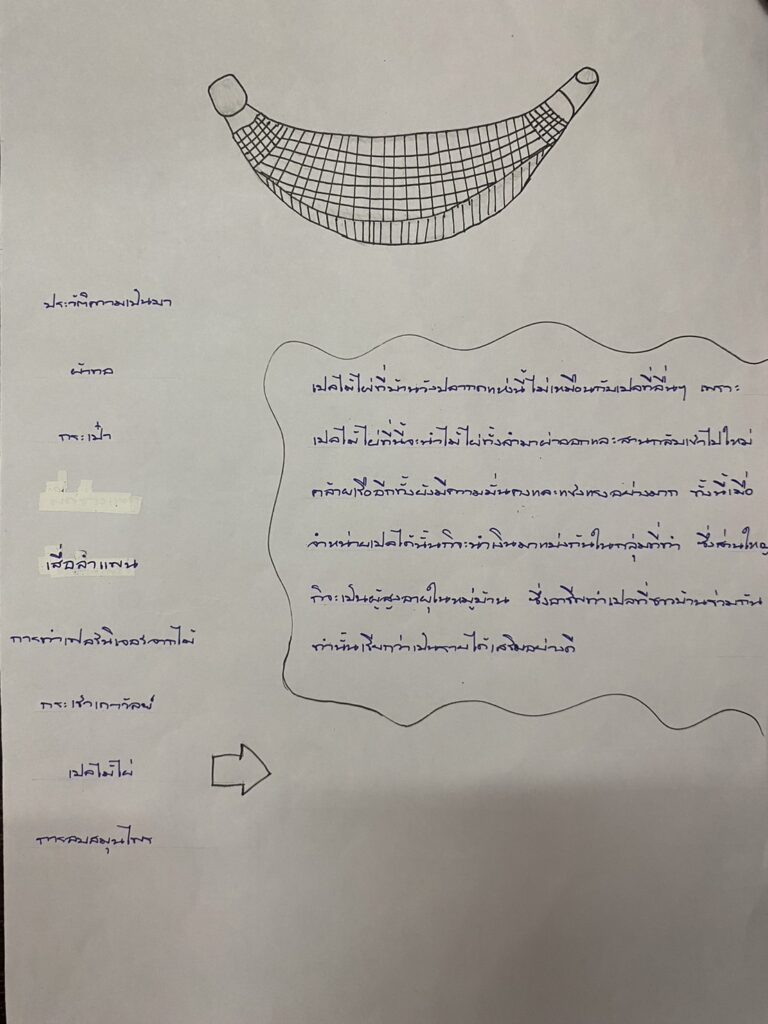 ประวัติความเป็นมา
ผ้าทอ
กระเป๋า
เสื่อลำแพน
การทำเฟอร์นิเจอร์จากไม้
กระเช้าเถาวัลย์
เปลไม้ไผ่
การอบสมุนไพร
เปลไม้ไผ่ที่บ้านวังปลากดแห่งนี้ไม่เหมือนกับเปลที่อื่นๆ เพราะ
เปลไม้ไผ่ที่นี้จะนำไม้ไผ่ทั้งลำมาผ่าออกและสานกลับเข้าไปใหม่
คล้ายเรืออีกทั้งยังมีความมั่นคงและแข็งแรงอย่างมาก ทั้งนี้เมื่อ
จำหน่ายเปลได้นั้นก็จะนำเงินมาแบ่งกันในกลุ่มที่ทำ ซึ่งส่วนใหญ่
ก็จะเป็นผู้สูงอายุในหมู่บ้าน ซึ่งอาชีพทำเปลที่ชาวบ้านร่วมกัน
ทำนั้นเรียกว่าเป็นรายได้เสริมอย่างดี